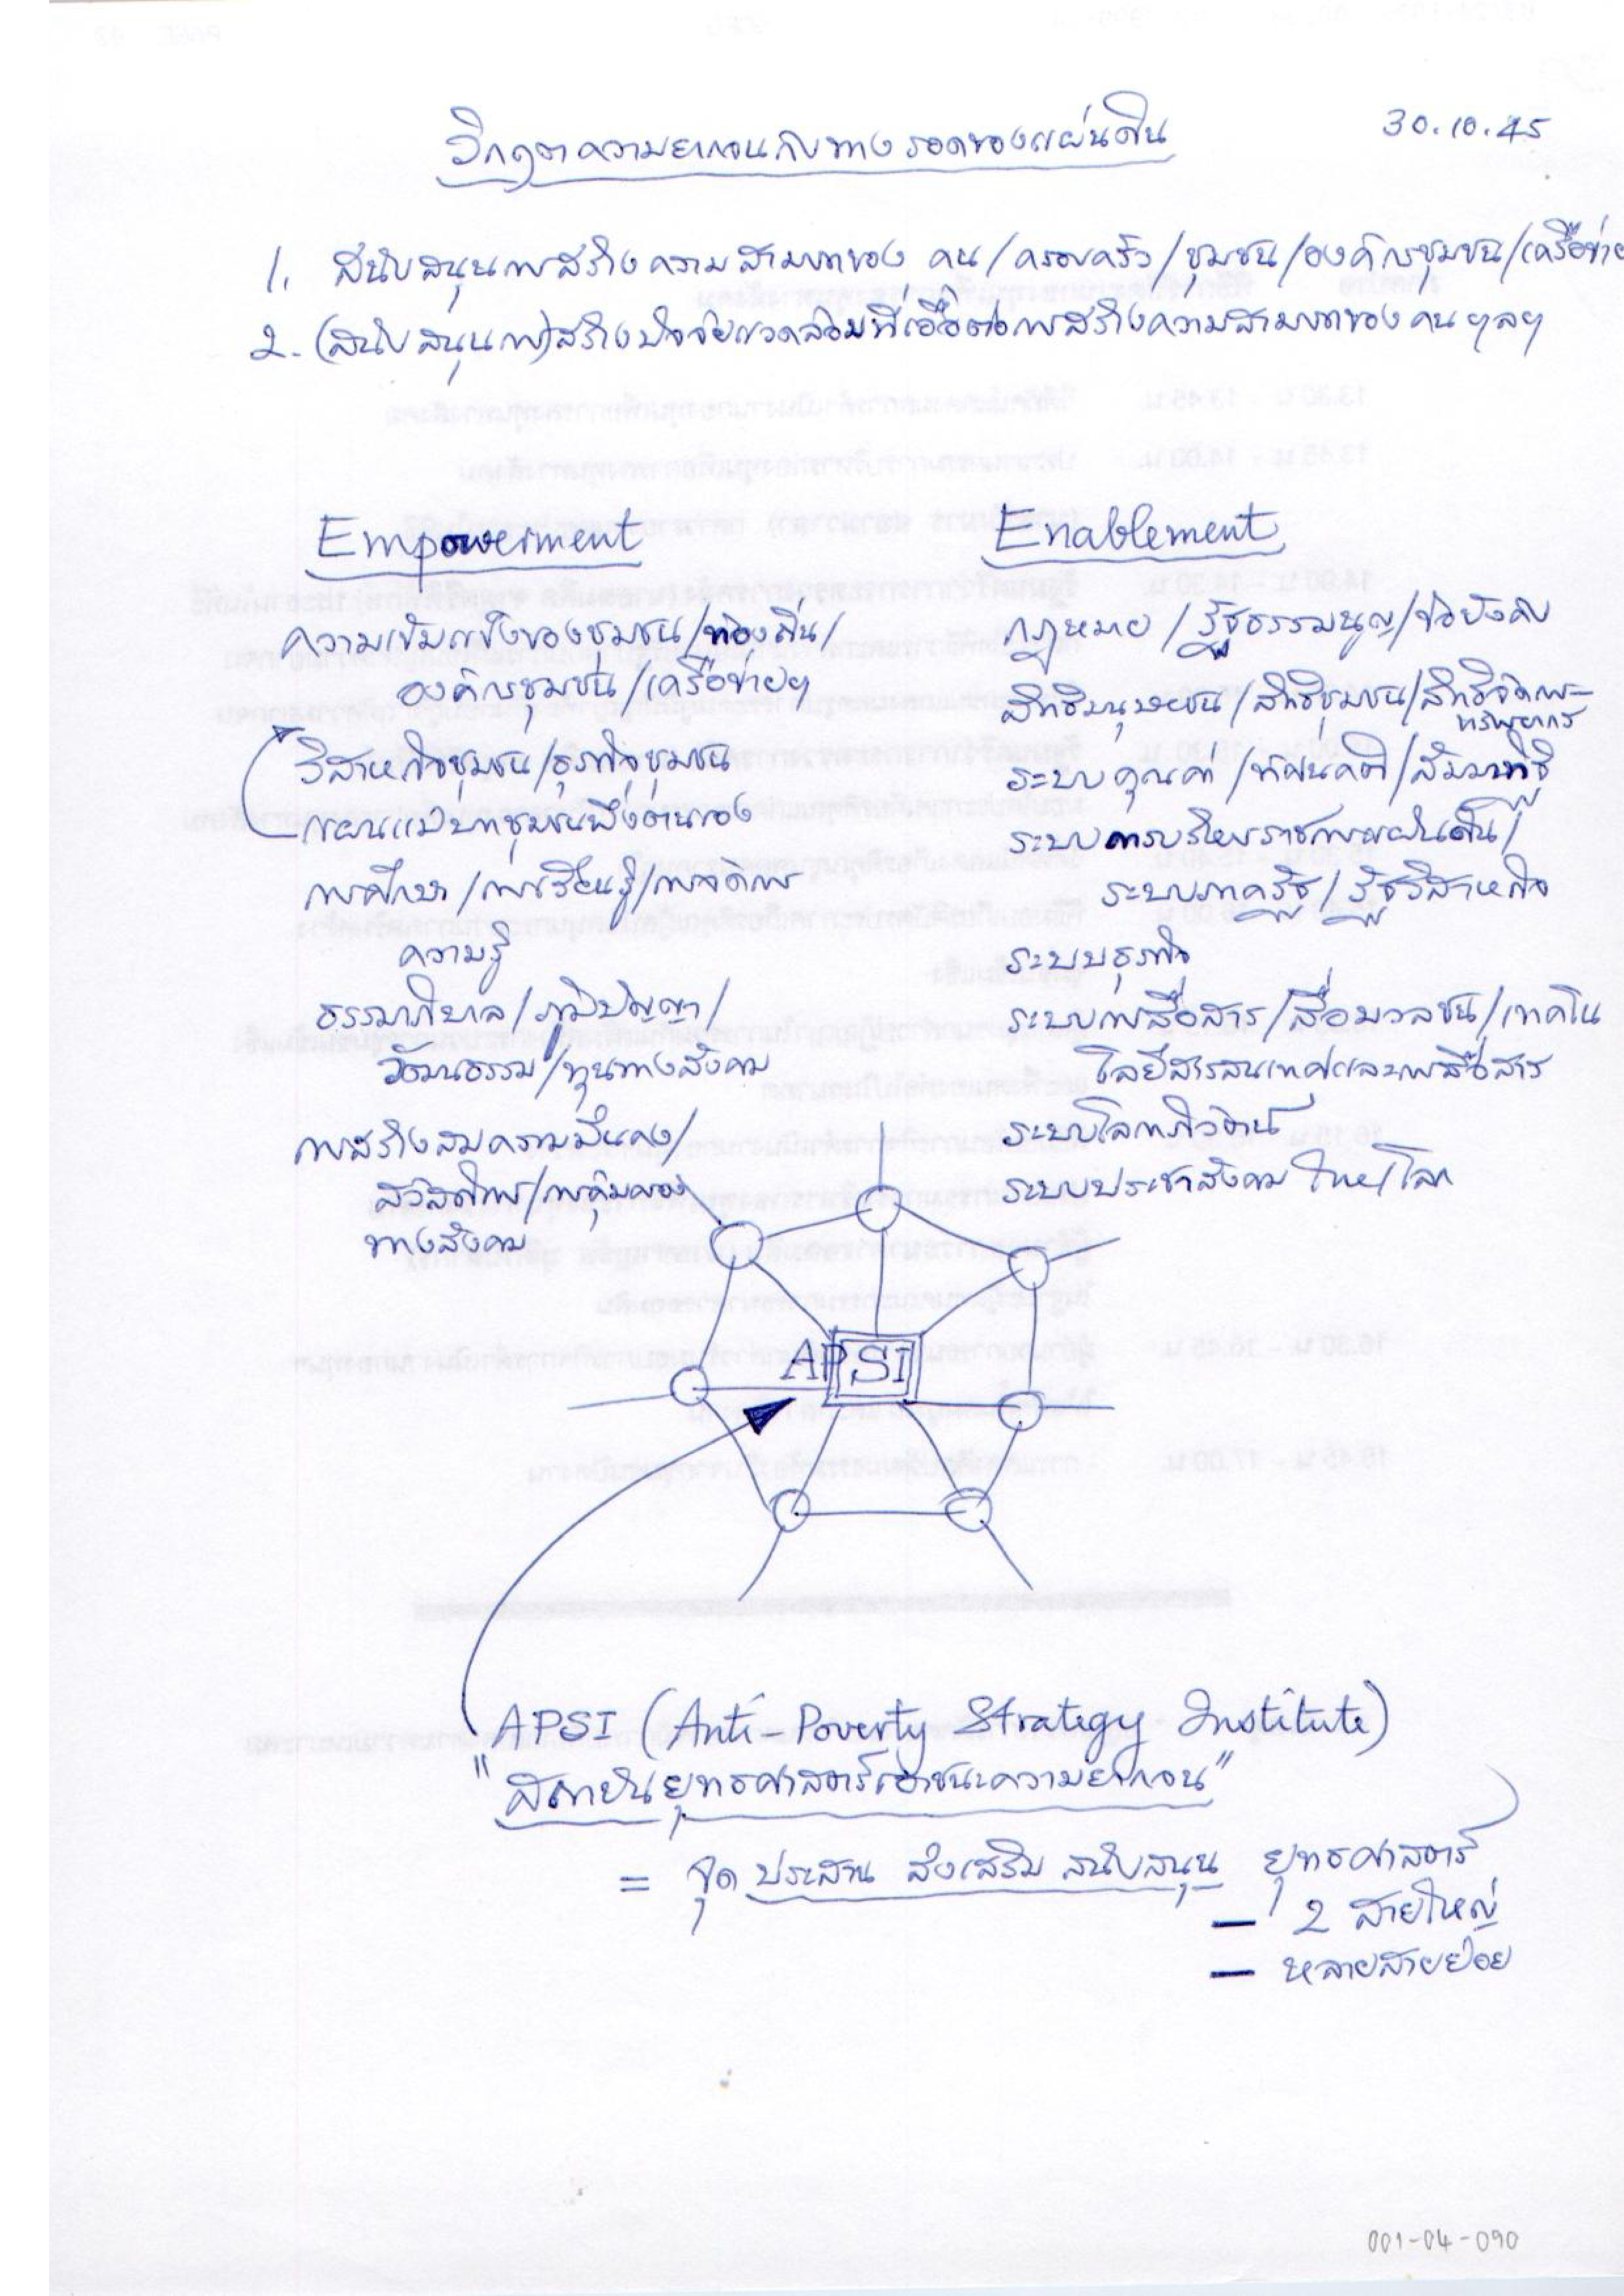 วิกฤตความยากจนกับทางรอดของแผ่นดิน
30.10.45
1. สนับสนุนการสร้างความสามารถของ คน/ครอบครัว/ชุมชน/องค์กรชุมชน/เครือข่าย
2. (สนับสนุนการ)สร้างปัจจัยแวดล้อมที่เอื้อต่อการสร้างความสามารถของ คน ฯลฯ
Empowerment
ความเข้มแข็งของชุมชน/ท้องถิ่น/
องค์กรชุมชน/เครือข่ายฯ
วิสาหกิจชุมชน/ธุรกิจชุมชน
แผนแม่บทชุมชนพึ่งตนเอง
การศึกษา/การเรียนรู้/การจัดการ
ความรู้
ธรรมาภิบาล/ภูมิปัญญา/
วัฒนธรรม/ทุนทางสังคม
การสร้างสมความมั่นคง/
สวัสดิการ/การคุ้มครอง
ทางสังคม
Enablement
กฎหมาย/รัฐธรรมนูญ/ข้อบังคับ
สิทธิมนุษยชน/สิทธิชุมชน/สิทธิจัดการ
ทรัพยากร
ระบบคุณค่า/ทัศนคติ/สัมมาทิฐิ
ระบบการบริหารราชการแผ่นดิน/
ระบบภาครัฐ/รัฐวิสาหกิจ
ระบบธุรกิจ
ระบบการสื่อสาร/สื่อมวลชน/เทคโน
โลยีสารสนเทศและการสื่อสาร
ระบบโลกาภิวัตน์
ระบบประชาสังคม ไทย/โลก
APSI
APSI (Anti-Poverty Strategy Institute)
"สถาบันยุทธศาสตร์เอาชนะความยากจน"
= จุด ประสาน ส่งเสริม สนับสนุน ยุทธศาสตร์
— 2 สายใหญ่
— หลายสายย่อย
001-04-090